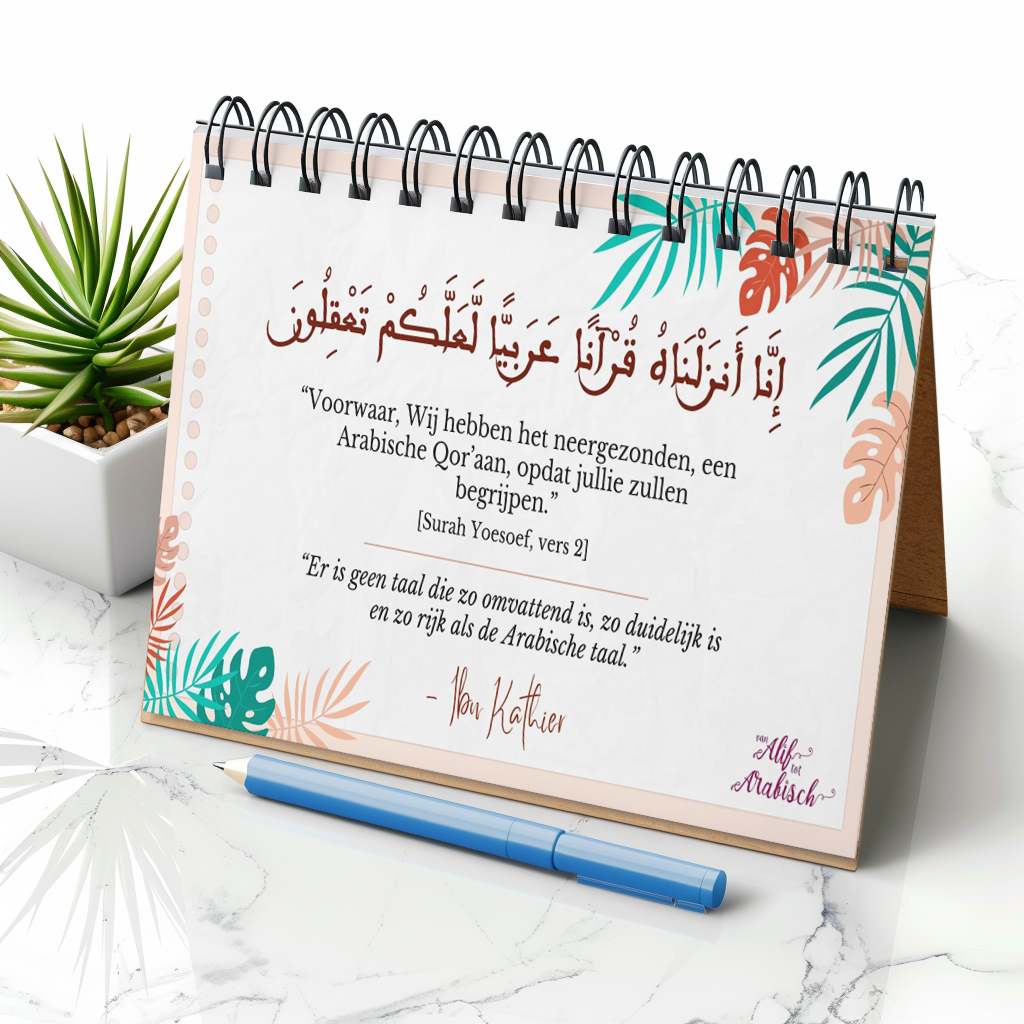 إِنَّا أَنزَلْنَاهُ قُرْآنًا عَرَبِيًّا لَّعَلَّكُمْ تَعْقِلُونَ
“Voorwaar, Wij hebben het neergezonden, een
Arabische Qor’aan, opdat jullie zullen
begrijpen.”
[Surah Yoesoef, vers 2]
“Er is geen taal die zo omvattend is, zo duidelijk is
en zo rijk als de Arabische taal.”
- Ibn Kathier
van
Alif
tot
Arabisch